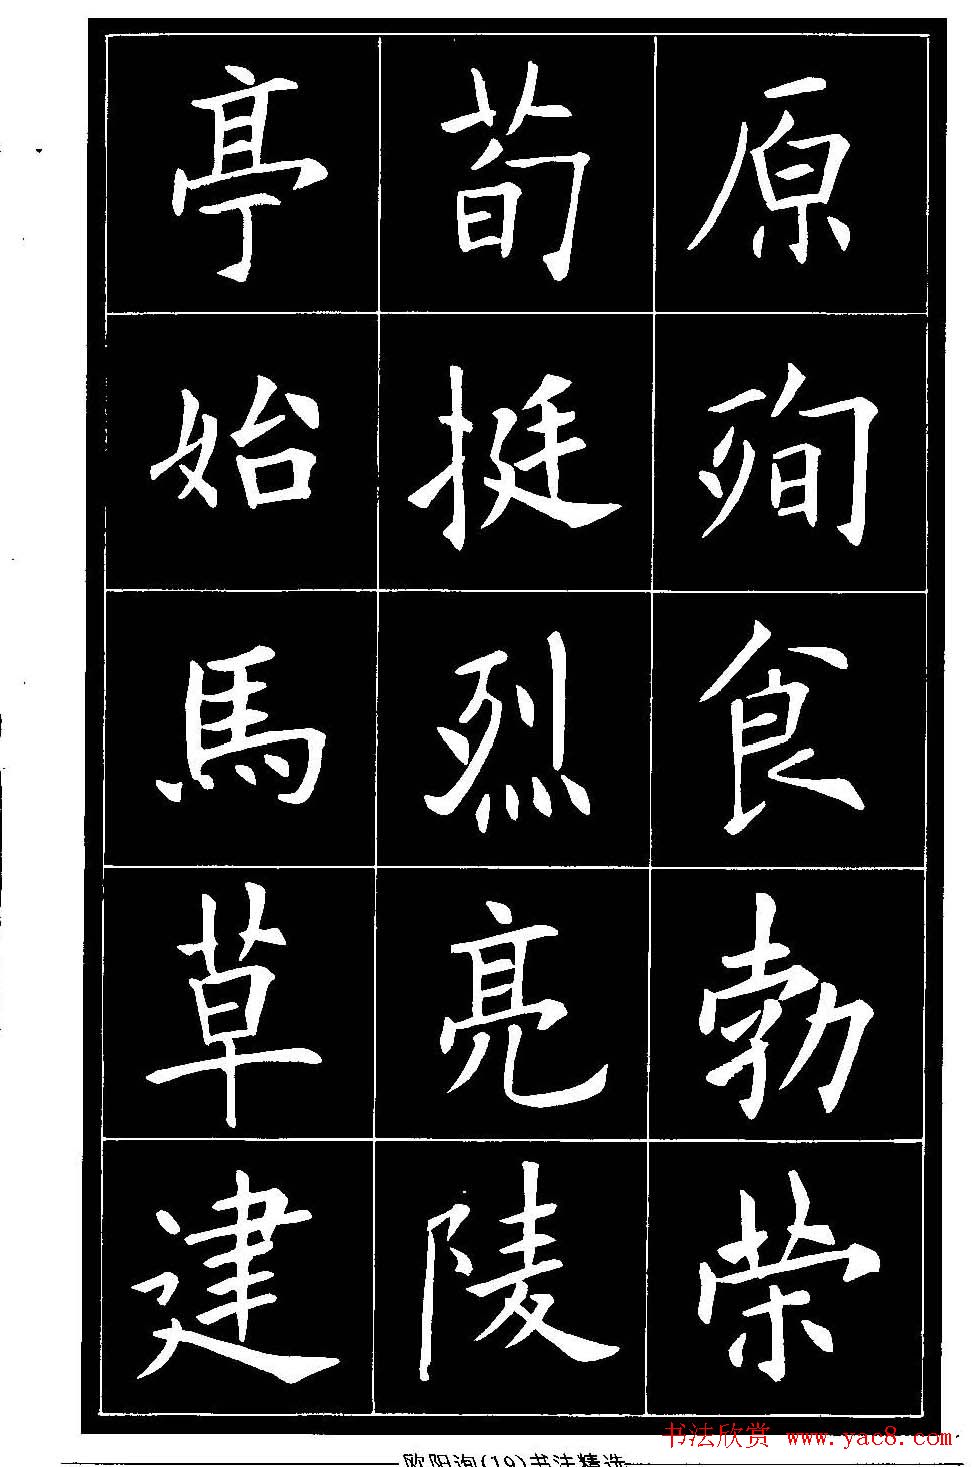 原殉食勃荣
荀挺烈亮陵
亭始馬草建
书法欣赏 www.yac8.com
欧阳询(19)书法精选